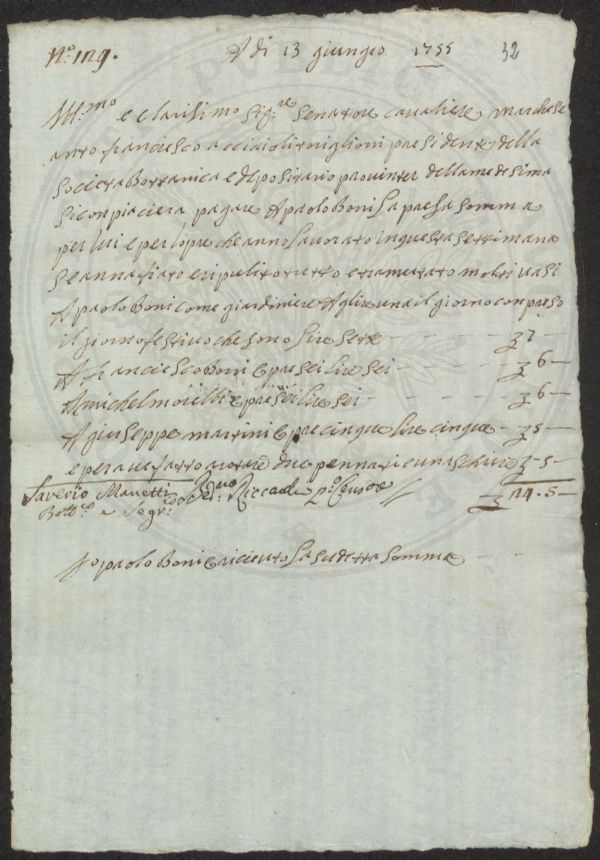 N.o 129. A di 13 giungio 1755 32
Ill.mo e Clarisimo Sig.re Senatore Cavaliere Marchese
anto franciesco acciaioli toriglioni presidente della
Societa Bottanica e depositario provinter della medesima
Si conpiacera pagare A paolo Boni La presa somma
per lui e per lopre che anno Lavorato in questa settimana
Se annafiato e ripulito tutto e tramutato molti vasi
A paolo Boni come giardiniere A lire una il giorno conpreso
il giorno festivo che sono lire sette 7 —
A franciesco Boni Opre sei lire sei 6 —
A michel Opre sei lire sei 6 —
A giuseppe martini Opre cinque lire cinque 5 —
e per aver fatto due pennati e una 5 —
Saverio Manetti Riccardi pi. Censore 24.5 —
Bott.co e Segr.o
Io paolo Boni O riceuto La sudetta somma